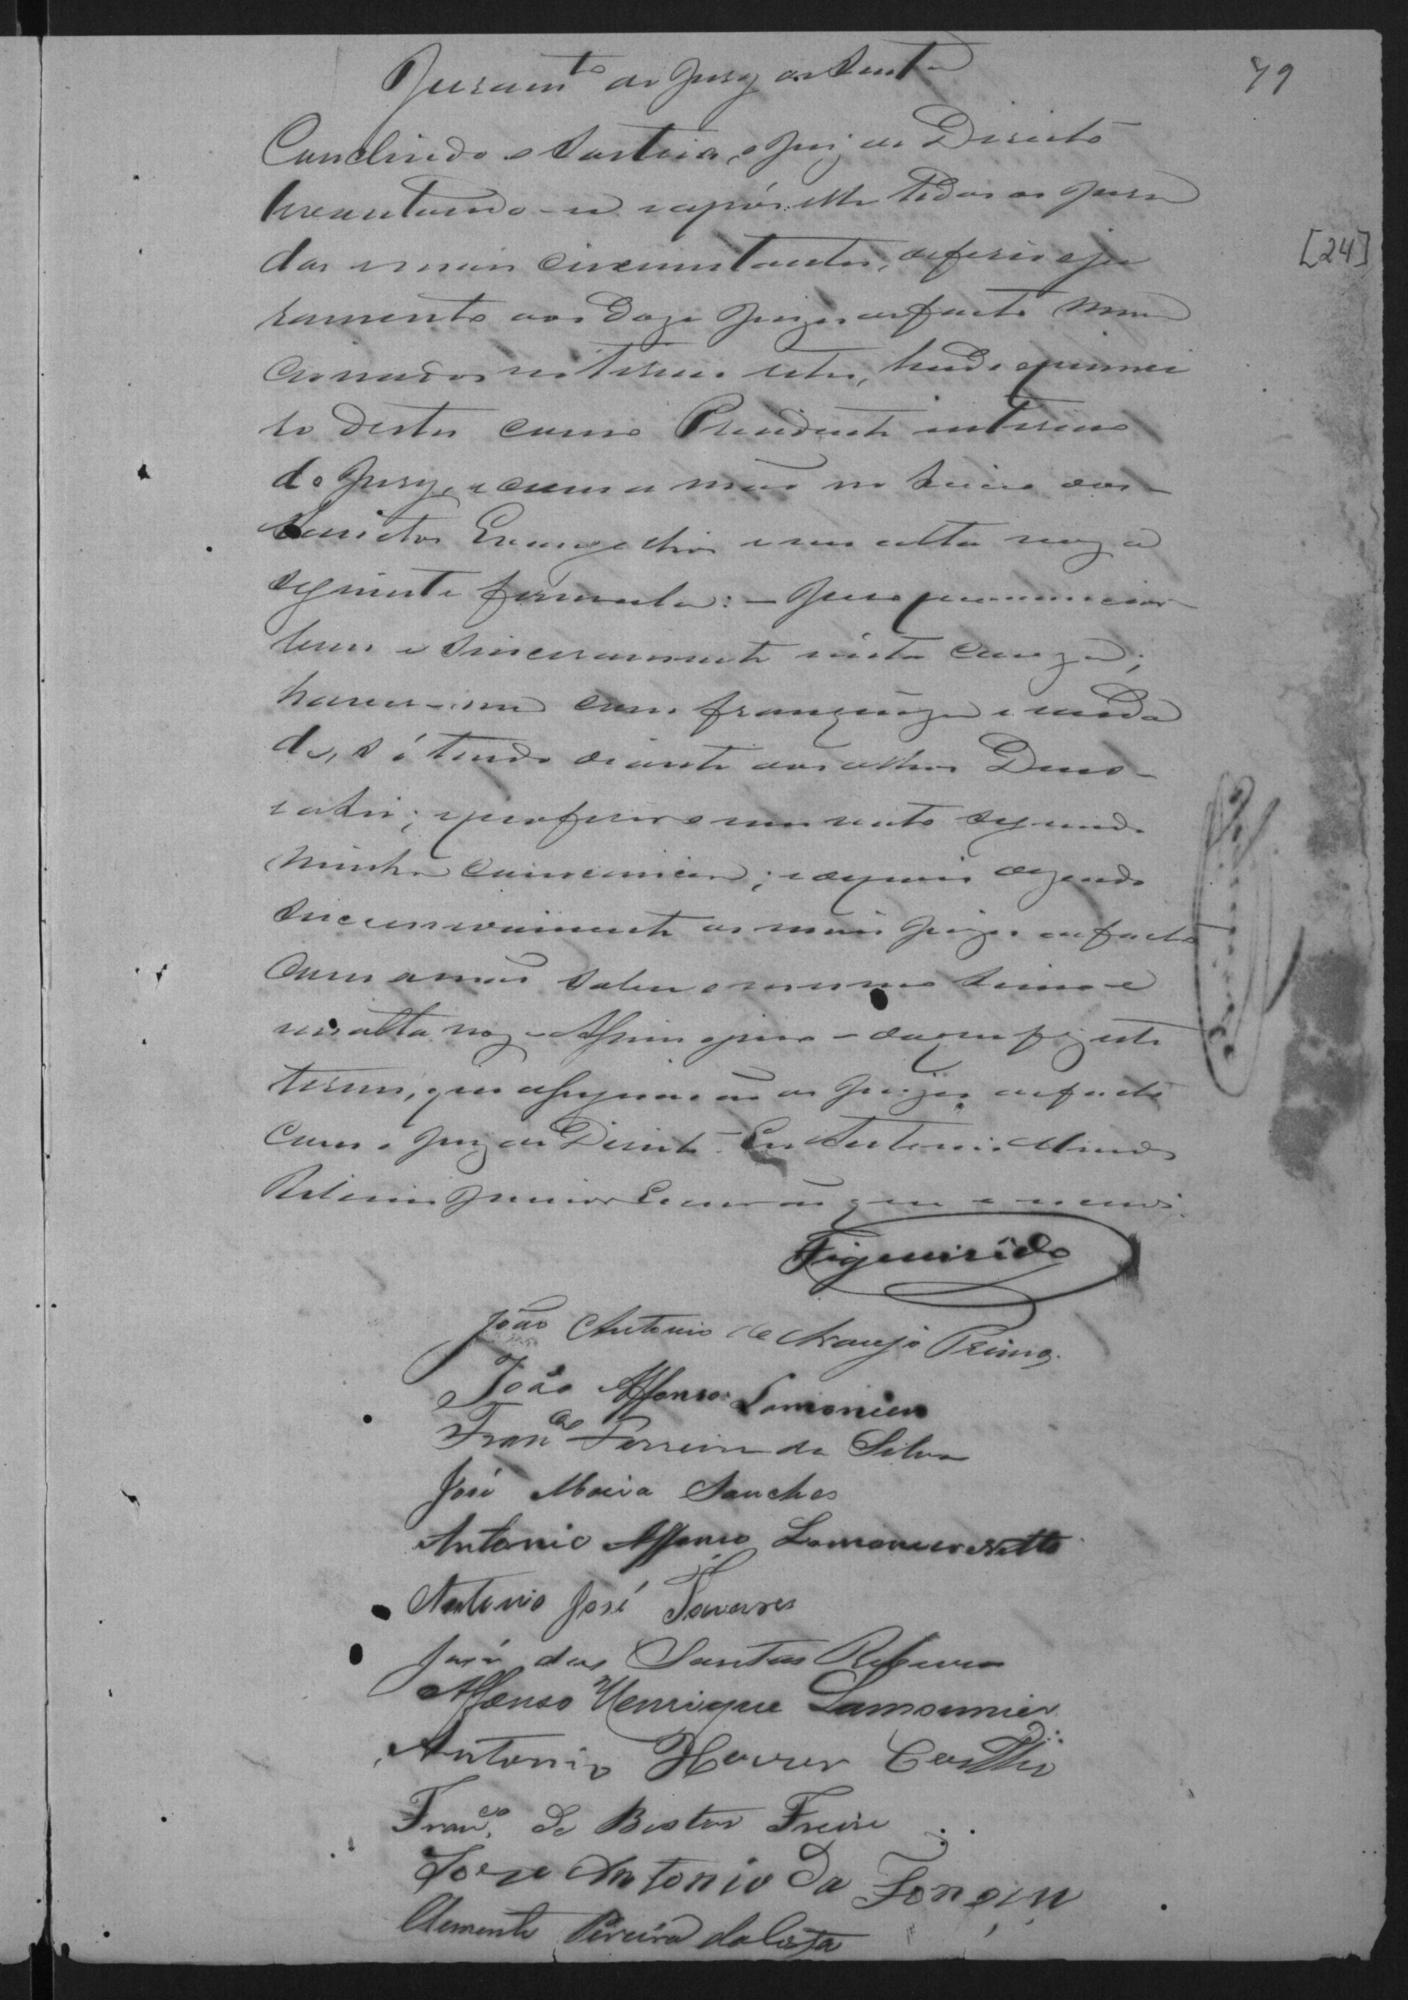 Juramto do Jury de Sentca
79
Concluido o sorteio, o Juiz de Direito
levantando-se e após elle todos os jura
dos e mais circunstantes, deferio o ju
[24]
ramento aos doze Juizes de facto men
cionados no termo retro, lendo o primei
ro destes como Presidente interino
do Jury, e com a mão no livro dos
Sanctos Evangelhos e em alta voz a
seguinte formula: - Juro pronunciar
bem e sinceramente nesta causa;
haver-me com franqueza e verda
de, só tendo diante dos olhos Deus
e a Lei; e proferir o meu voto segundo
minha consciencia; e depois dizendo
successivamente os mais Juizes de facto
com a mão sobre o mesmo livro e
em alta voz - Assim o juro - do que fiz este
termo, que assignarão os Juizes de facto
com o Juiz de Direito. Eu Antonio
Junior Escrivão que o escrevi.
Figueirêdo
João Antonio de Araujo Primo.
João Affonso Lamounier
Franco Ferreira da Silva
José Maria Sanches
Antonio Affonso Lamounier Netto
Antonio José Tavares
José dos Santos Ribeiro
Affonso Henrique Lamounier
Antonio Coelho
Franco de Bastos Freire
Jose Antonio da Fonseca
Clemente Pereira da Costa